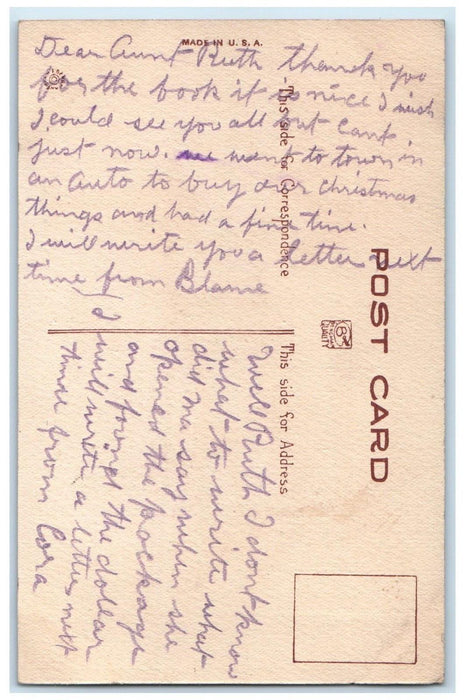 MADE IN U.S.A.
Dear Aunt Ruth thank you
for the book it is nice I wish
I could see you all but cant
just now. we went to town in
an auto to buy our christmas
things and had a fine time.
I will write you a letter next
time from Blanne
This side for Correspondence
POST CARD
This side for Address
Well Ruth I dont know
what to write what
did ma say when she
opened the package
and found the dollar
I will write a letter next
time from Cora